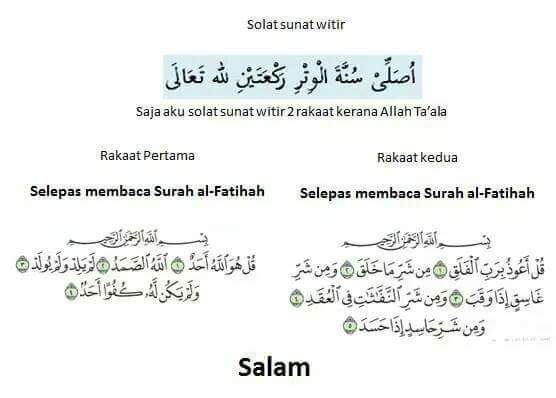 Solat sunat witir
اُصَلِّىْ سُنَّةَ الْوِتْرِ رَكْعَتَيْنِ لله تَعَالَى
Saja aku solat sunat witir 2 rakaat kerana Allah Ta’ala
Rakaat Pertama
Selepas membaca Surah al-Fatihah
بِسْمِ ٱللَّهِ ٱلرَّحْمَٰنِ ٱلرَّحِيمِ
قُلْ هُوَ ٱللَّهُ أَحَدٌ ١ ٱللَّهُ ٱلصَّمَدُ ٢ لَمْ يَلِدْ وَلَمْ يُولَدْ ٣
وَلَمْ يَكُن لَّهُۥ كُفُوًا أَحَدٌۢ ٤
Rakaat kedua
Selepas membaca Surah al-Fatihah
بِسْمِ ٱللَّهِ ٱلرَّحْمَٰنِ ٱلرَّحِيمِ
قُلْ أَعُوذُ بِرَبِّ ٱلْفَلَقِ ١ مِن شَرِّ مَا خَلَقَ ٢ وَمِن شَرِّ
غَاسِقٍ إِذَا وَقَبَ ٣ وَمِن شَرِّ ٱلنَّفَّٰثَٰتِ فِي ٱلْعُقَدِ ٤
وَمِن شَرِّ حَاسِدٍ إِذَا حَسَدَ ٥
Salam